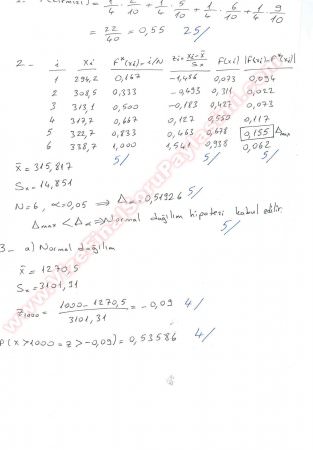 = 1/4 · 2/10 + 1/4 · 5/10 + 1/4 · 6/10 + 1/4 · 9/10
= 22/40 = 0,55 25/
2- i xi F*(xi) = i/N zi = (xi-x̄)/Sx F(xi) |F(xi)-F*(xi)|
1 294,2 0,167 -1,456 0,073 0,094
2 308,5 0,333 -0,493 0,311 0,022
3 313,1 0,500 -0,183 0,427 0,073
4 317,7 0,667 0,127 0,550 0,117
5 322,7 0,833 0,463 0,678 0,155 Δmax
6 338,7 1,000 1,541 0,938 0,062
5/ 5/ 5/
x̄ = 315,817
Sx = 14,851
N=6, α=0,05 ⇒ Δα = 0,51926 5/
Δmax < Δα ⇒ Normal dağılım hipotezi kabul edilir.
5/
3- a) Normal dağılım
x̄ = 1270,5
Sx = 3101,31
z1000 = (1000-1270,5)/3101,31 = -0,09 4/
P(x>1000 = z>-0,09) = 0,53586 4/